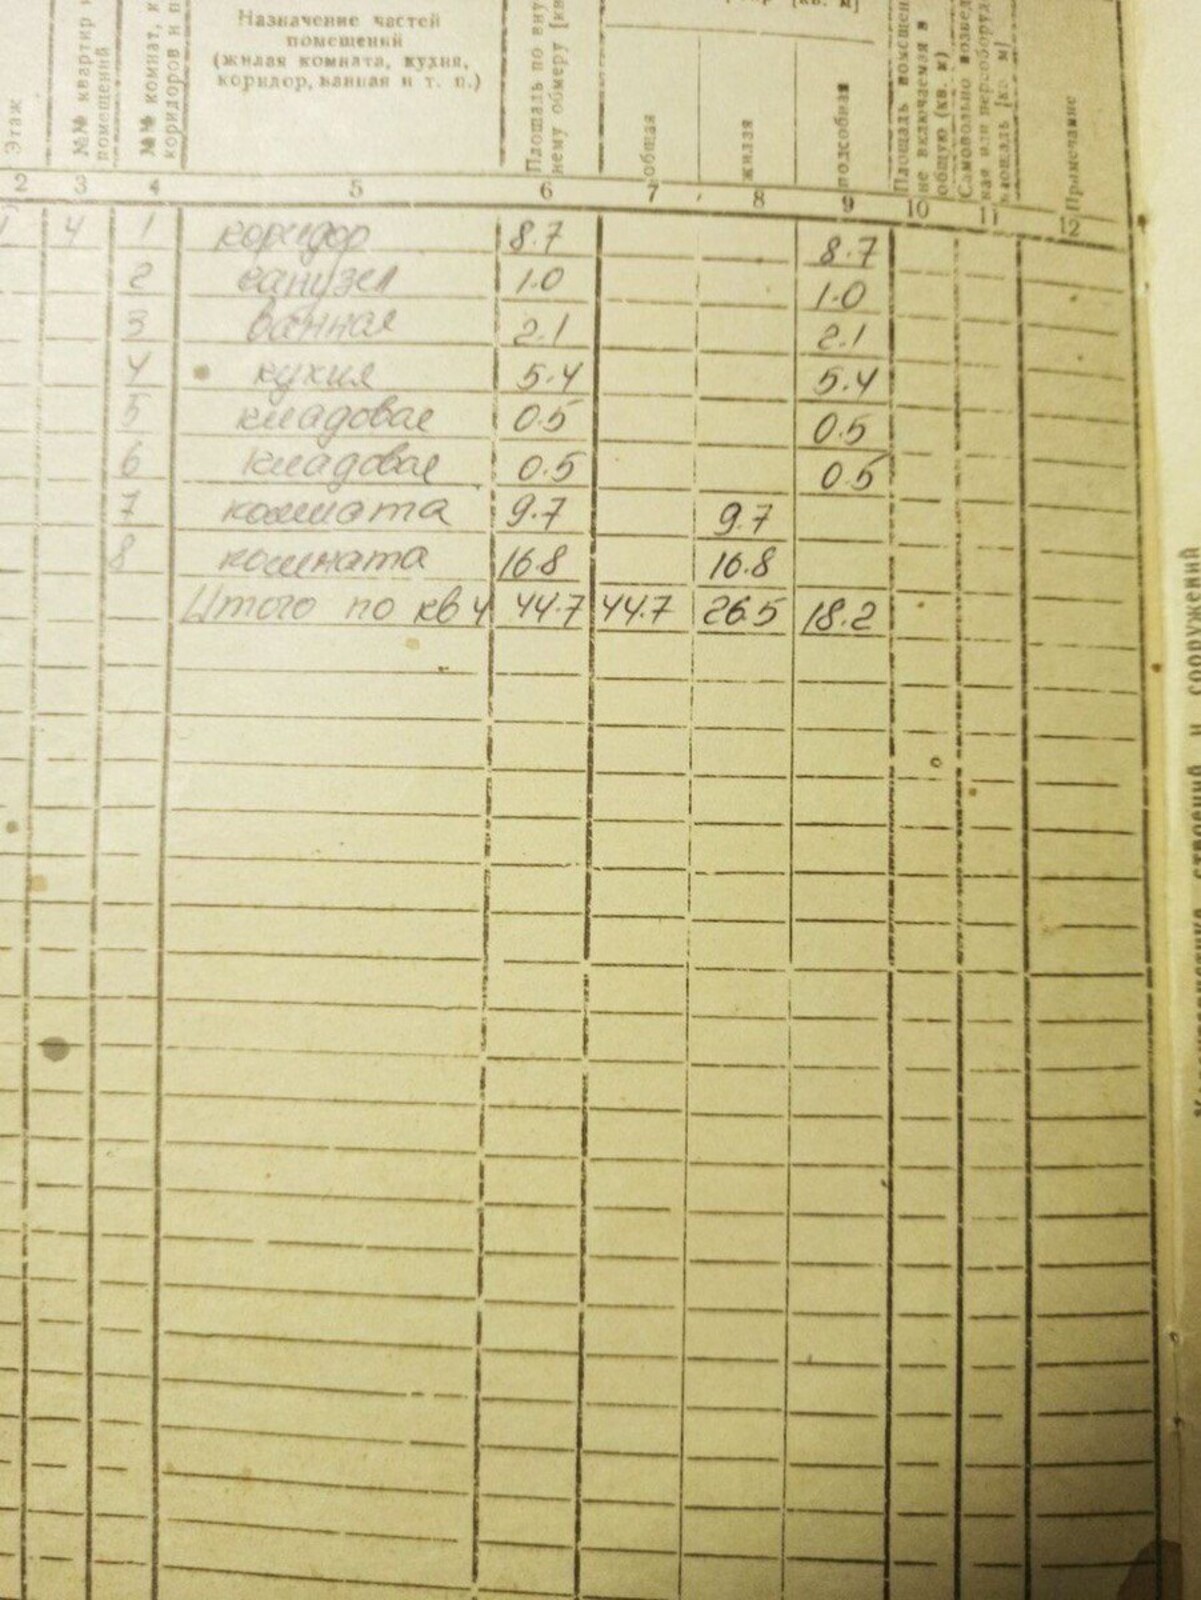 Этаж
№№ квартир
помещений
№№ комнат,
коридоров и
Назначение частей
помещений
(жилая комната, кухня,
коридор, ванная и т. п.)
Площадь по
нему обмеру
общая
[кв. м]
жилая
подсобная
Площадь
не включаемая в
общую (кв. м)
Самовольно
кая или
площадь
Примечание
2 3 4 5 6 7 8 9 10 11 12
4 1 коридор 8.7 8.7
2 санузел 1.0 1.0
3 ванная 2.1 2.1
4 кухня 5.4 5.4
5 кладовая 0.5 0.5
6 кладовая 0.5 0.5
7 комната 9.7 9.7
8 комната 16.8 16.8
Итого по кв 4 44.7 44.7 26.5 18.2
сооружений